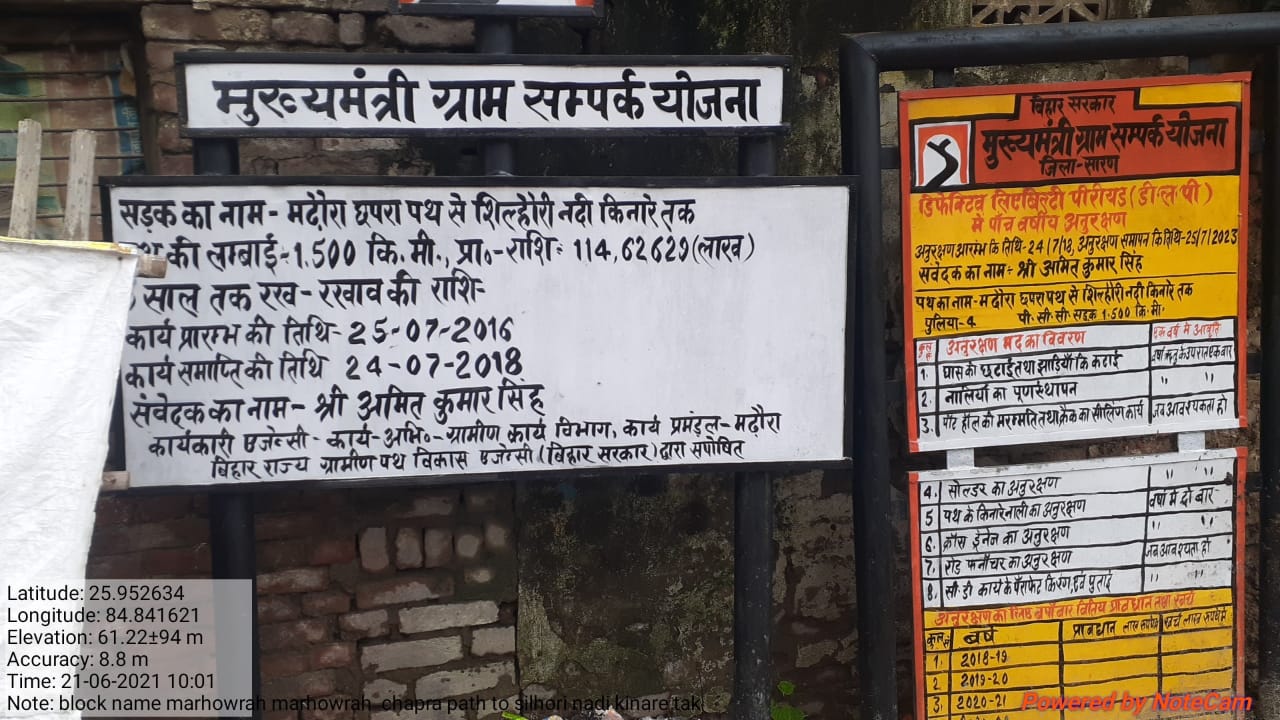 मुख्यमंत्री ग्राम सम्पर्क योजना
सड़क का नाम - मढ़ौरा छपरा पथ से शिल्हौरी नदी किनारे तक
की लम्बाई - 1.500 कि.मी., प्रा०- राशि - 114,62629 (लाख)
साल तक रख - रखाव की राशि-
कार्य प्रारम्भ की तिथि - 25-07-2016
कार्य समाप्ति की तिथि 24-07-2018
संवेदक का नाम - श्री अमित कुमार सिंह
कार्यकारी एजेन्सी - कार्य-अभि०-ग्रामीण कार्य विभाग, कार्य प्रमंडल-मढ़ौरा
बिहार राज्य ग्रामीण पथ विकास एजेन्सी (बिहार सरकार) द्वारा सपोषित
बिहार सरकार
मुख्यमंत्री ग्राम सम्पर्क योजना
जिला-सारण
डिफेक्टिव लिएबिल्टी पीरीयड (डी.ल.पी)
में पाँच वर्षीय अनुरक्षण
अनुरक्षण आरंभ कि तिथि-24/7/18, अनुरक्षण समापन कि तिथि-25/7/2023
संवेदक का नाम - श्री अमित कुमार सिंह
पथ का नाम - मढ़ौरा छपरा पथ से शिल्हौरी नदी किनारे तक
पुलिया-4 पी.सी.सी सड़क 1.500 कि.मी.
अनुरक्षण मद का विवरण एक वर्ष में आवृति
1. घास की छटाई तथा झाड़ियों कि कटाई वर्षा ऋतु के उपरान्त एक बार
2. नालियों का पूर्णस्थापन " "
3. पॉट हॉल की मरम्मति तथा क्रैक का सीलिंग कार्य जब आवश्यकता हो
4. सोल्डर का अनुरक्षण " "
5 पथ के किनारे नाली का अनुरक्षण वर्षा में दो बार
6. क्रॉस ड्रेनेज का अनुरक्षण " "
7. रोड फर्नीचर का अनुरक्षण जब आवश्यता हो
8. सी.डी कार्य के पैराफेट कि रंग एवं पुताई " "
अनुरक्षण का लिए वर्षावार वित्तिय प्रावधान तथा खर्च
वर्ष प्रावधान लाख रूपये में खर्च लाख रूपये में
1. 2018-19
2 2019-20
3. 2020-21
Latitude: 25.952634
Longitude: 84.841621
Elevation: 61.22±94 m
Accuracy: 8.8 m
Time: 21-06-2021 10:01
Note: block name marhowrah marhowrah chapra path to silhori nadi kinare tak
Powered by NoteCam